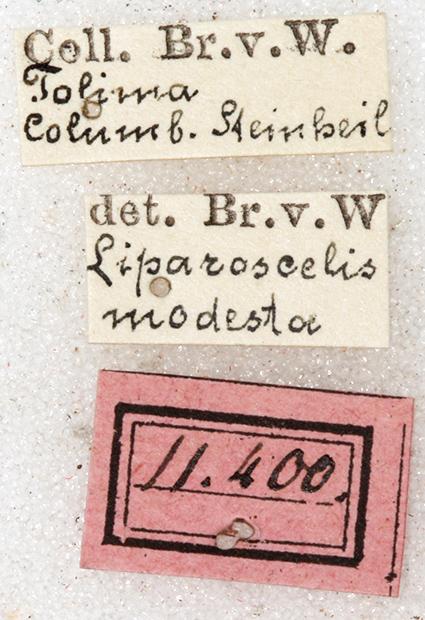 Coll. Br.v.W.
Tolima
Columb. Steinheil
det. Br.v.W
Liparoscelis
modesta
11.400.